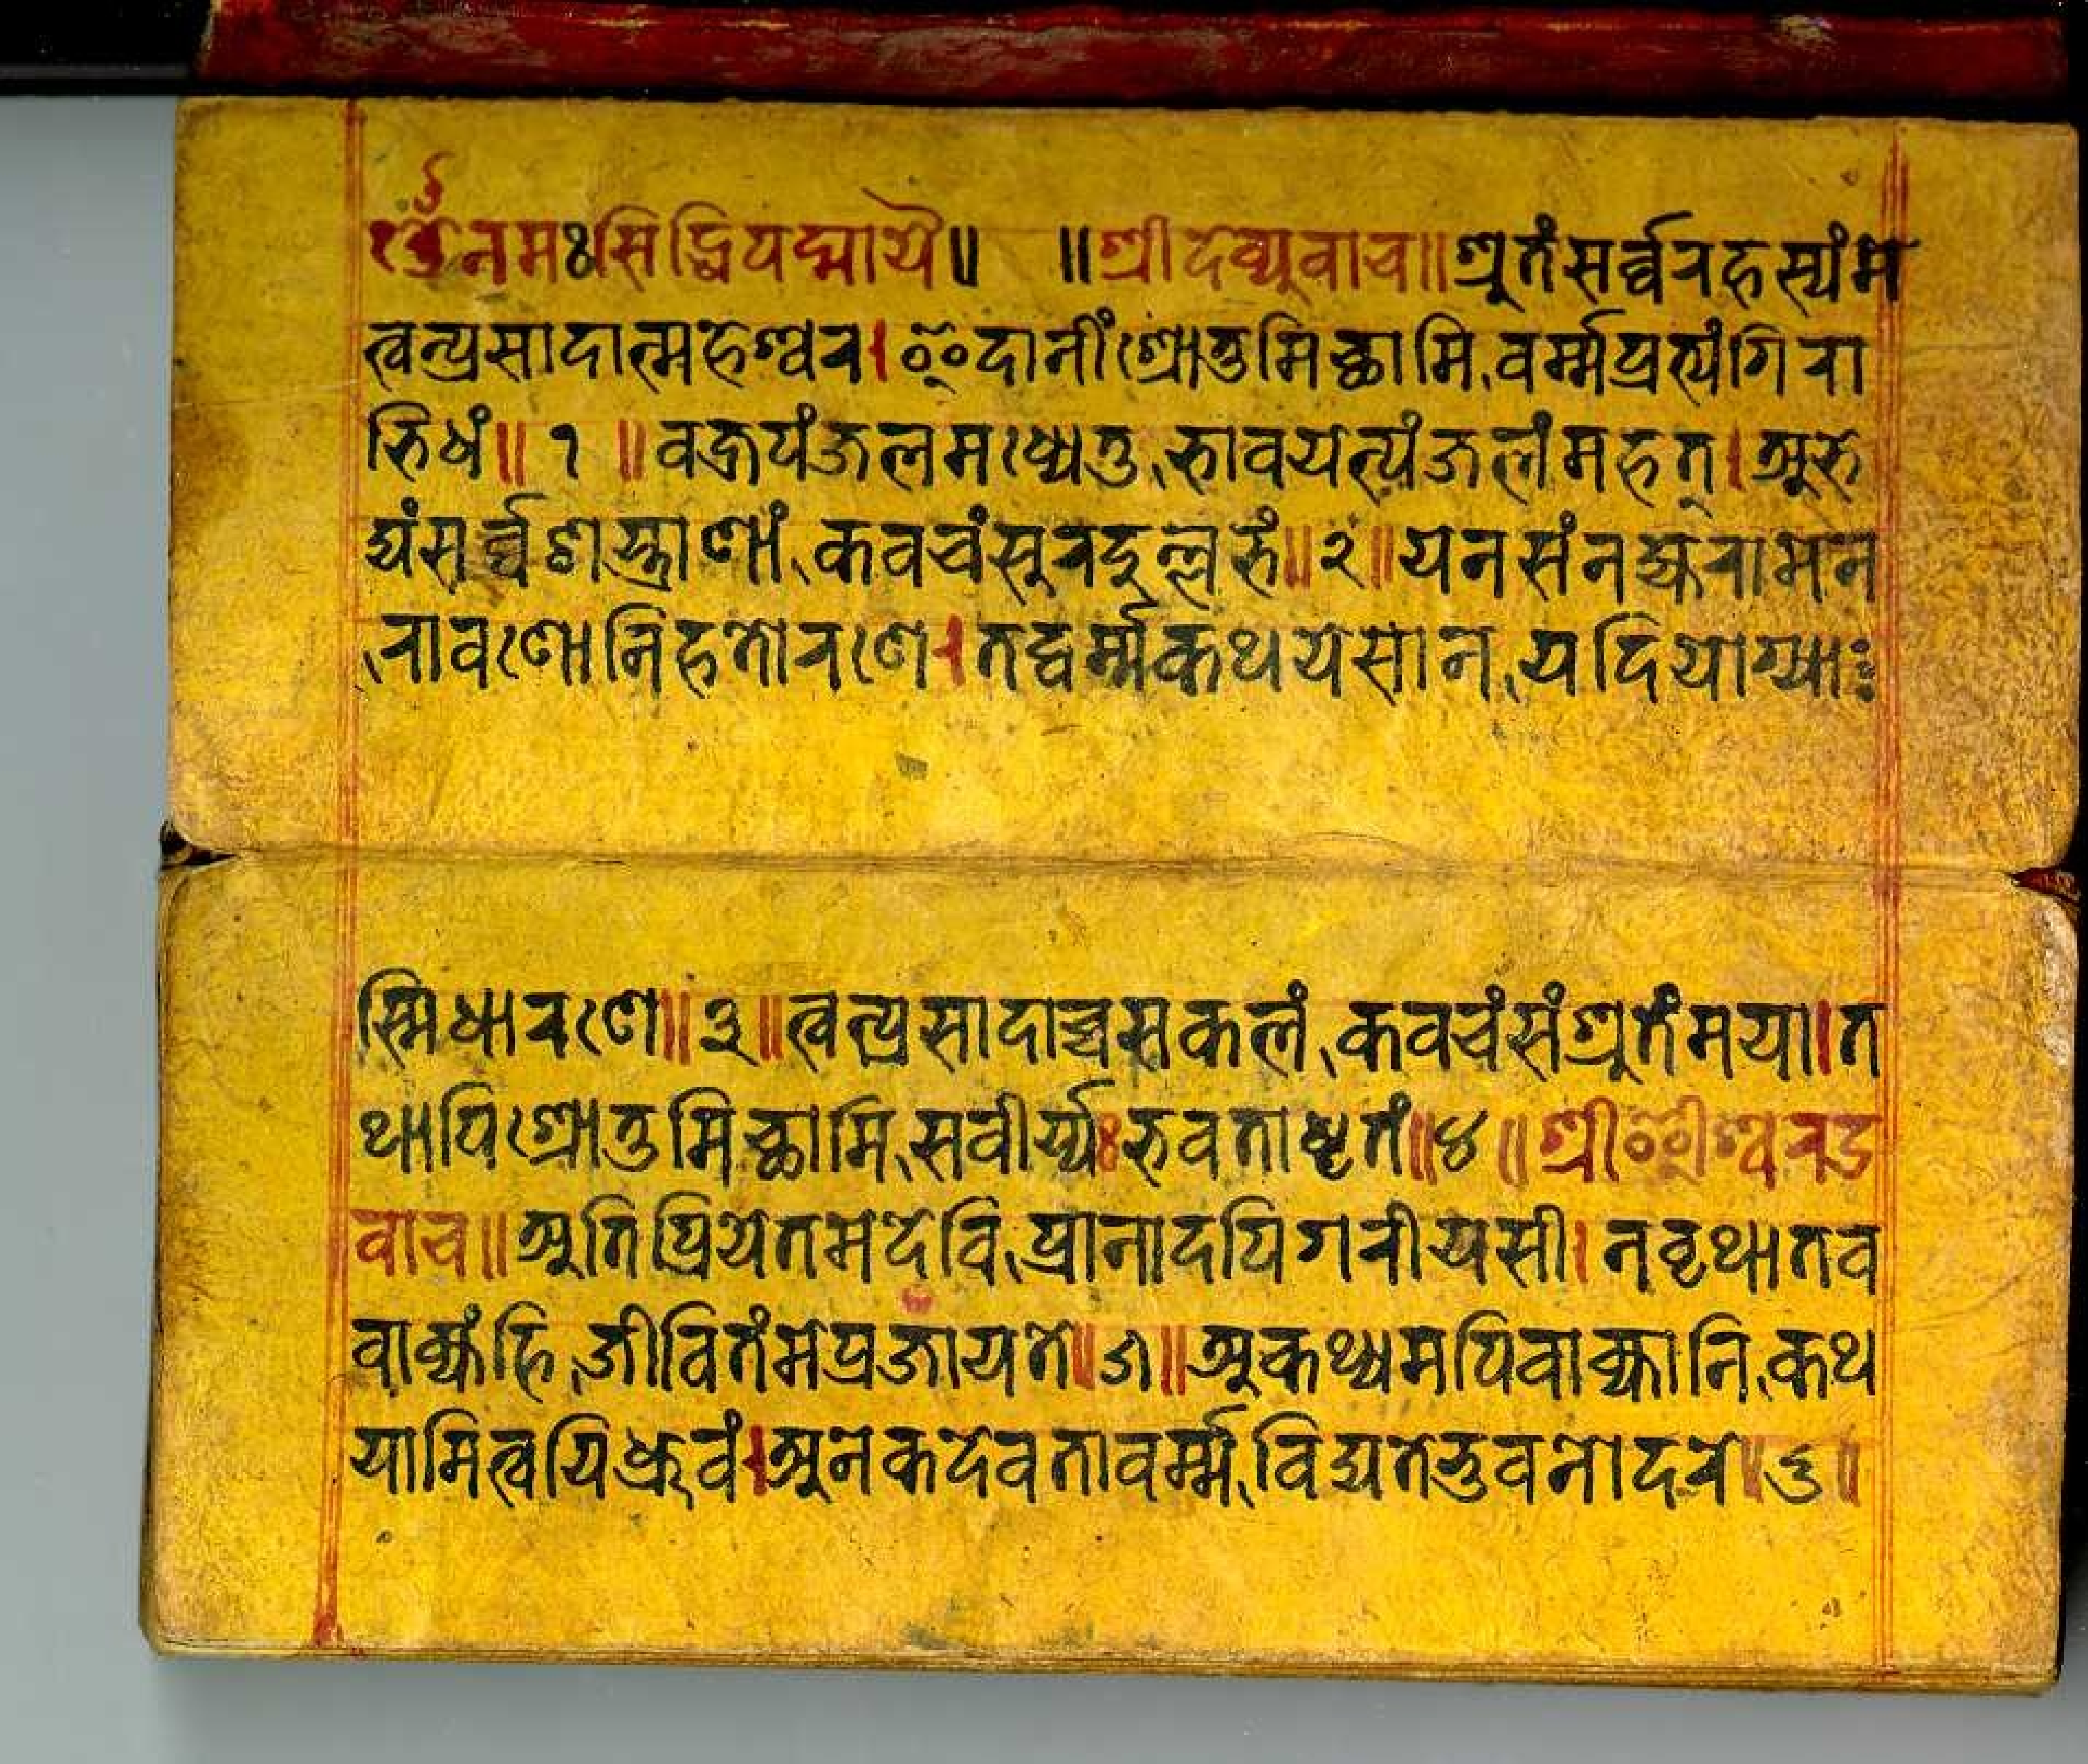 ॐनमःसिद्धिपद्मायै॥ ॥श्रीदेव्युवाच॥श्रुतंसर्व्वरहस्यंमे
त्वत्प्रसादात्महेश्वर।इदानींश्रोतुमिच्छामि,वर्म्मप्रत्यंगिरा
भिधं॥१॥वज्रपंजलमध्येतु,भावयेत्पंजलंमहत्।अभे
द्यंसर्व्वशस्त्राणां,कवचंसुरदुल्लभं॥२॥येनसंनह्यरामेन
,रावणोनिहतोरणे।तद्वर्म्मकथयेसान,यदियोग्याः
स्मिधारणे॥३॥त्वत्प्रसादाच्चसकलं,कवचंसंश्रुतंमया।त
थापिश्रोतुमिच्छामि,सवीर्य्यःभवताधृतं॥४॥श्रीईश्वरउ
वाच॥अतिप्रियेतमेदेवि,प्रानादपिगरीयसी।नवृथातव
वाक्यंहि,जीवितंमेप्रजायते॥५॥अकथ्यमपिवाक्यानि,कथ
यामित्वयिध्रुवं।अनेकदेवतावर्म्म,विद्यतेभुवनोदरे॥६॥